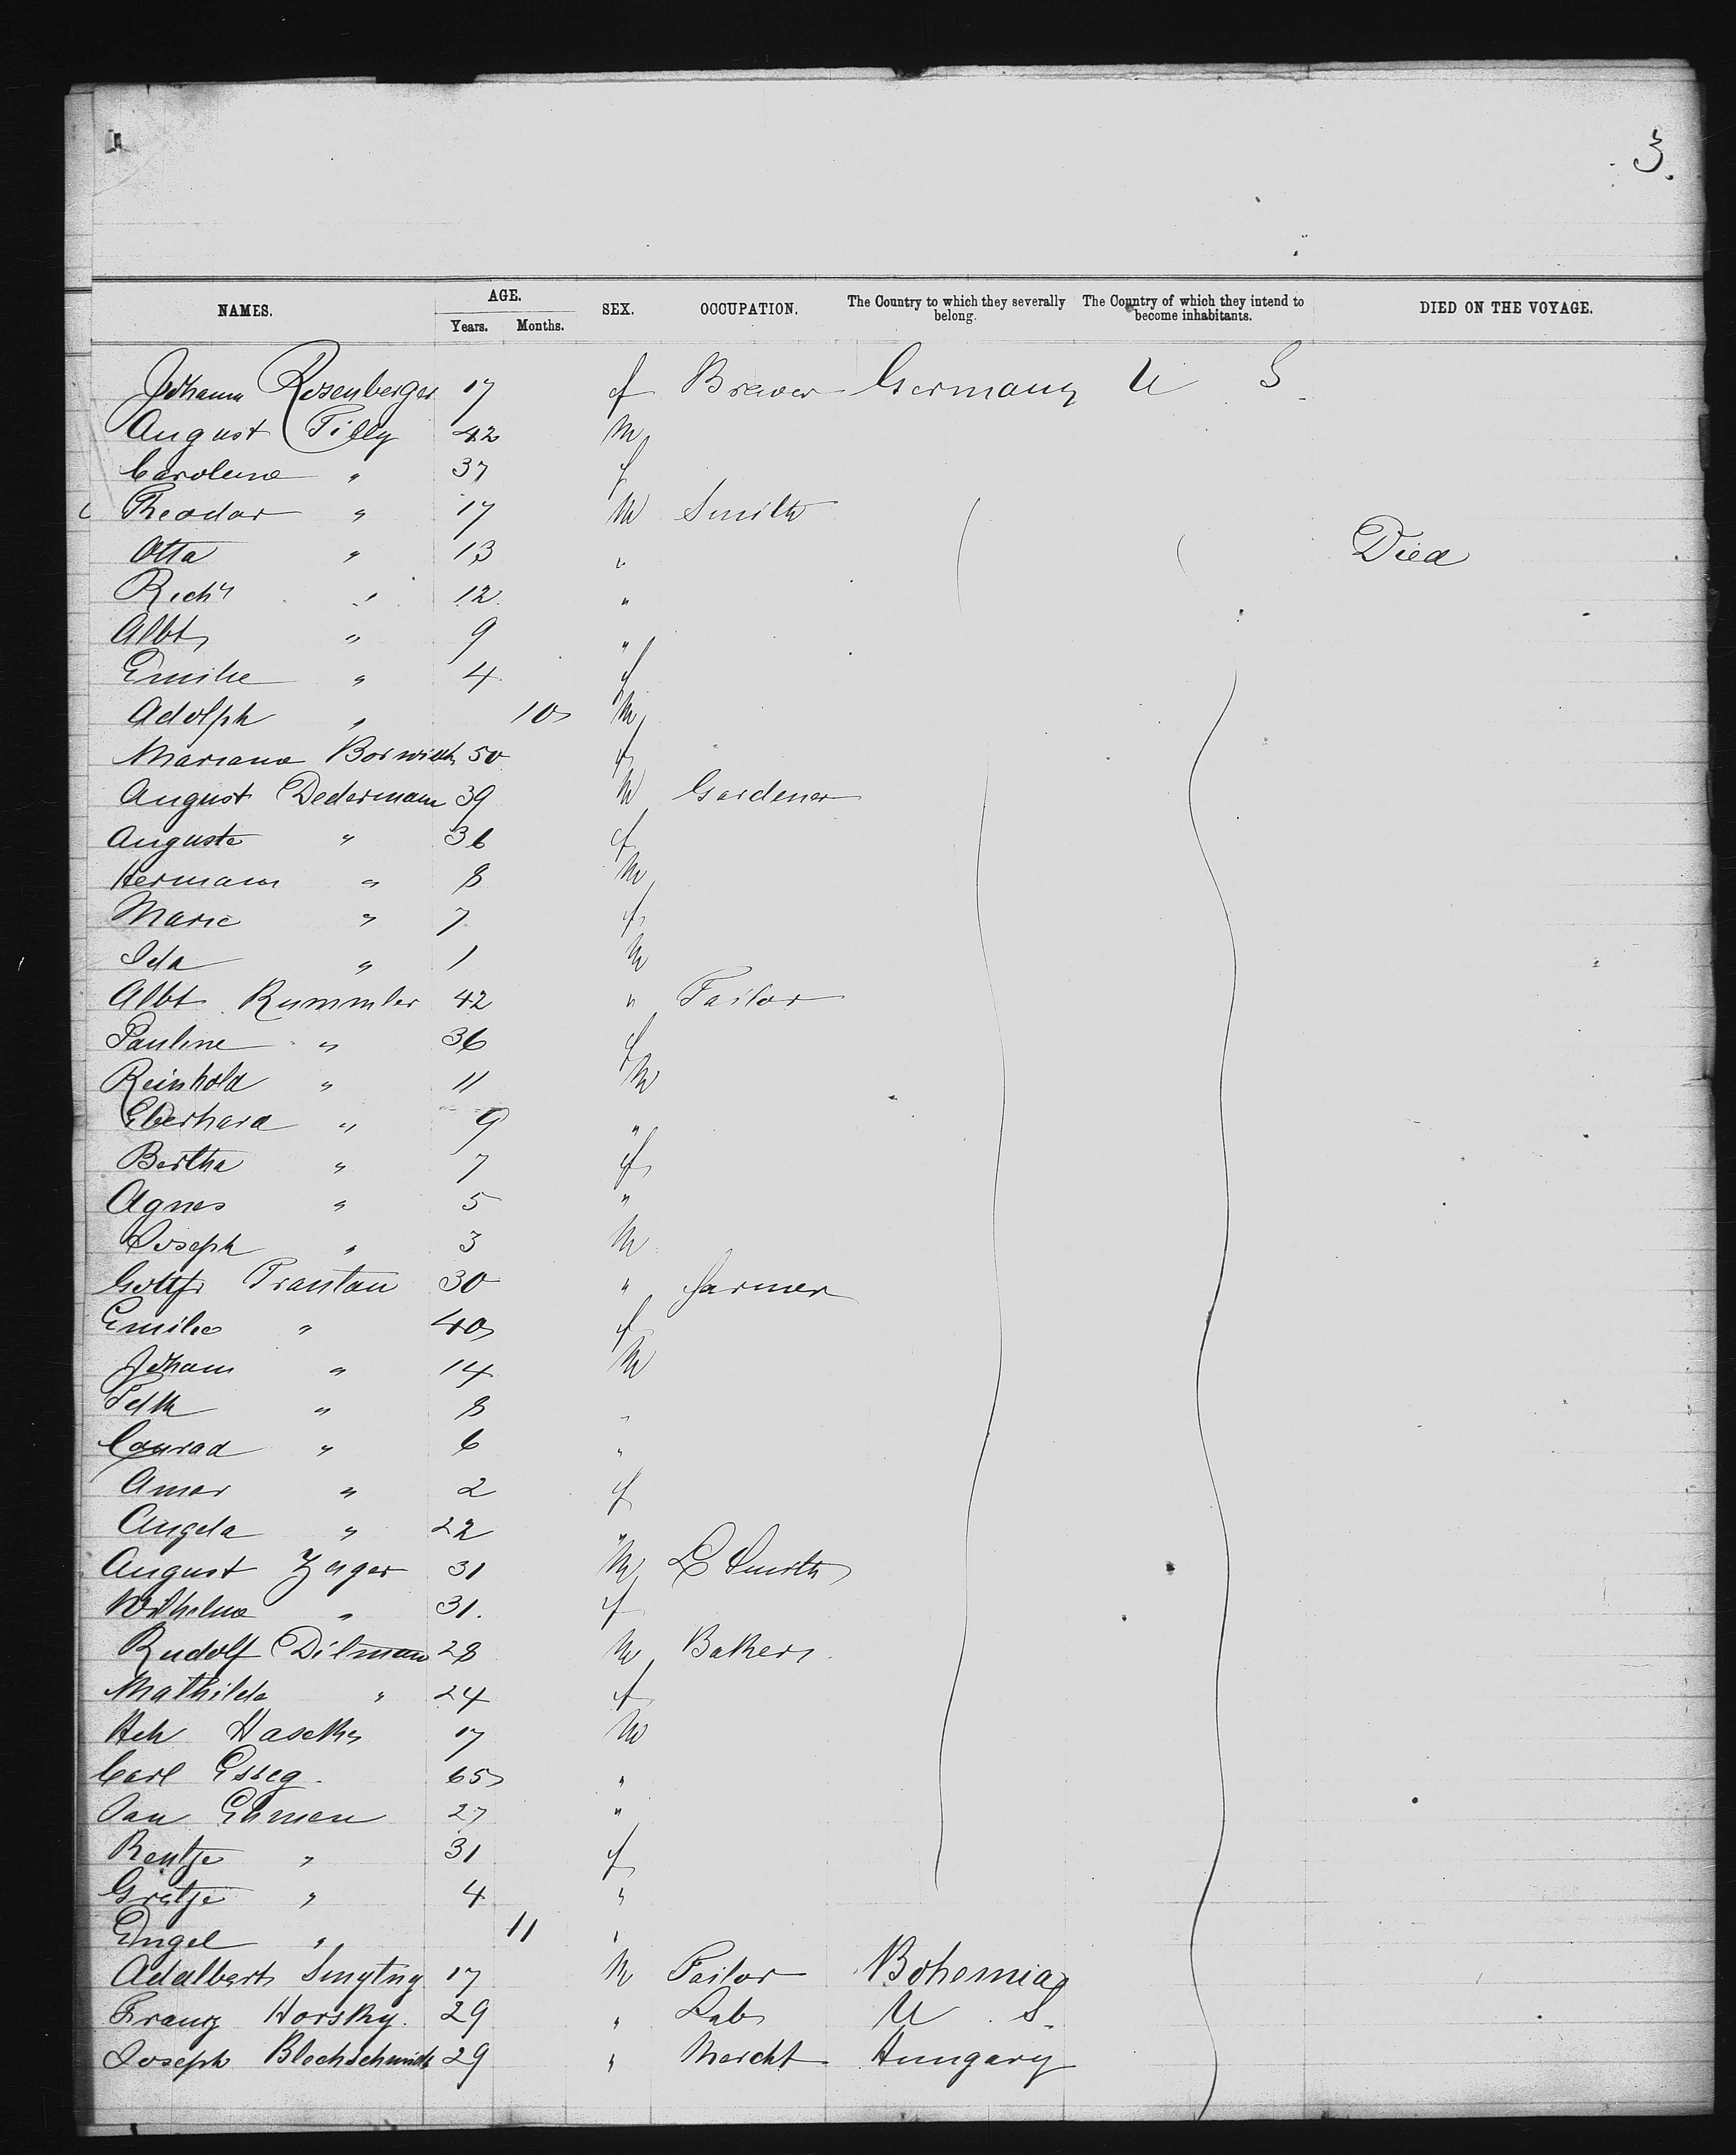 3.
NAMES. AGE. Years. Months. SEX. OCCUPATION. The Country to which they severally belong. The Country of which they intend to become inhabitants. DIED ON THE VOYAGE.
Johann Rosenberger 17 f Brewer Germany U S
August Tilly 42 M
Caroline " 37 f
Theodor " 17 M Smith
Otto " 13 " Died
Richd " 12 "
Albt " 9 "
Emilie " 4 f
Adolph " 10 M
Mariana 50 f
August Dedermann 39 M Gardener
Auguste " 36 f
Hermann " 8 M
Marie " 7 f
Ida " 1 M
Albt Rummler 42 " Tailor
Pauline " 36 f
Reinhold " 11 M
Eberhard " 9 "
Bertha " 7 f
Agnes " 5 "
Joseph " 3 M
Gottfr Trantau 30 " farmer
Emilie " 40 f
Johann " 14 M
" 8 "
Conrad " 6 "
" 2 f
Angela " 22 "
August Zager 31 M Smith
Wilhelma " 31. f
Rudolf Dilman 28 M Baker
Mathilde " 24 f
Hch 17 M
Carl Esseg. 65 "
Jan 27 "
Rentje " 31 f
Gretje " 4 "
Engel " 11 "
Adalbert 17 M Tailor Bohemia
Franz Horsky. 29 " Lab U S.
Joseph Blechschmidt 29 " Mercht Hungary